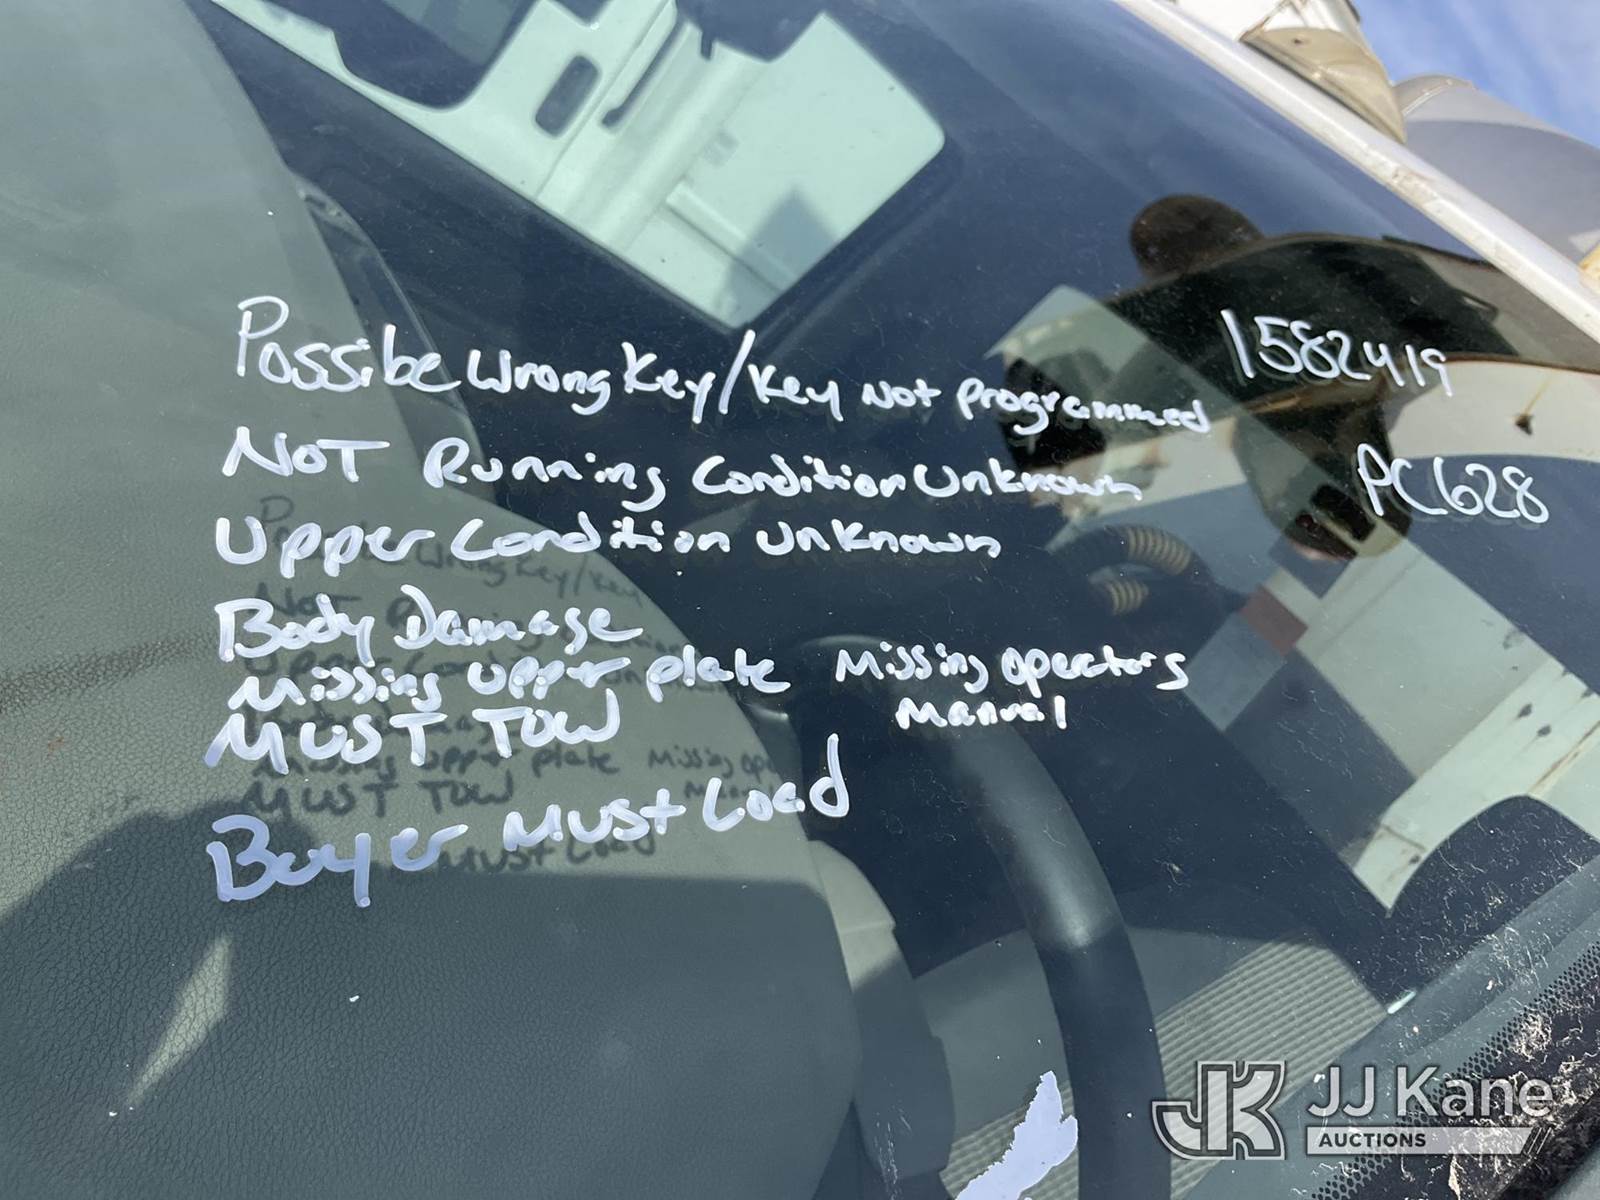 Possible Wrong Key/Key Not Programmed
1582419
NOT Running Condition Unknown
PC628
Upper Condition Unknown
Body Damage
Missing Upper plate Missing Operators
Manual
MUST TOW
Buyer Must Load
JJ Kane
AUCTIONS